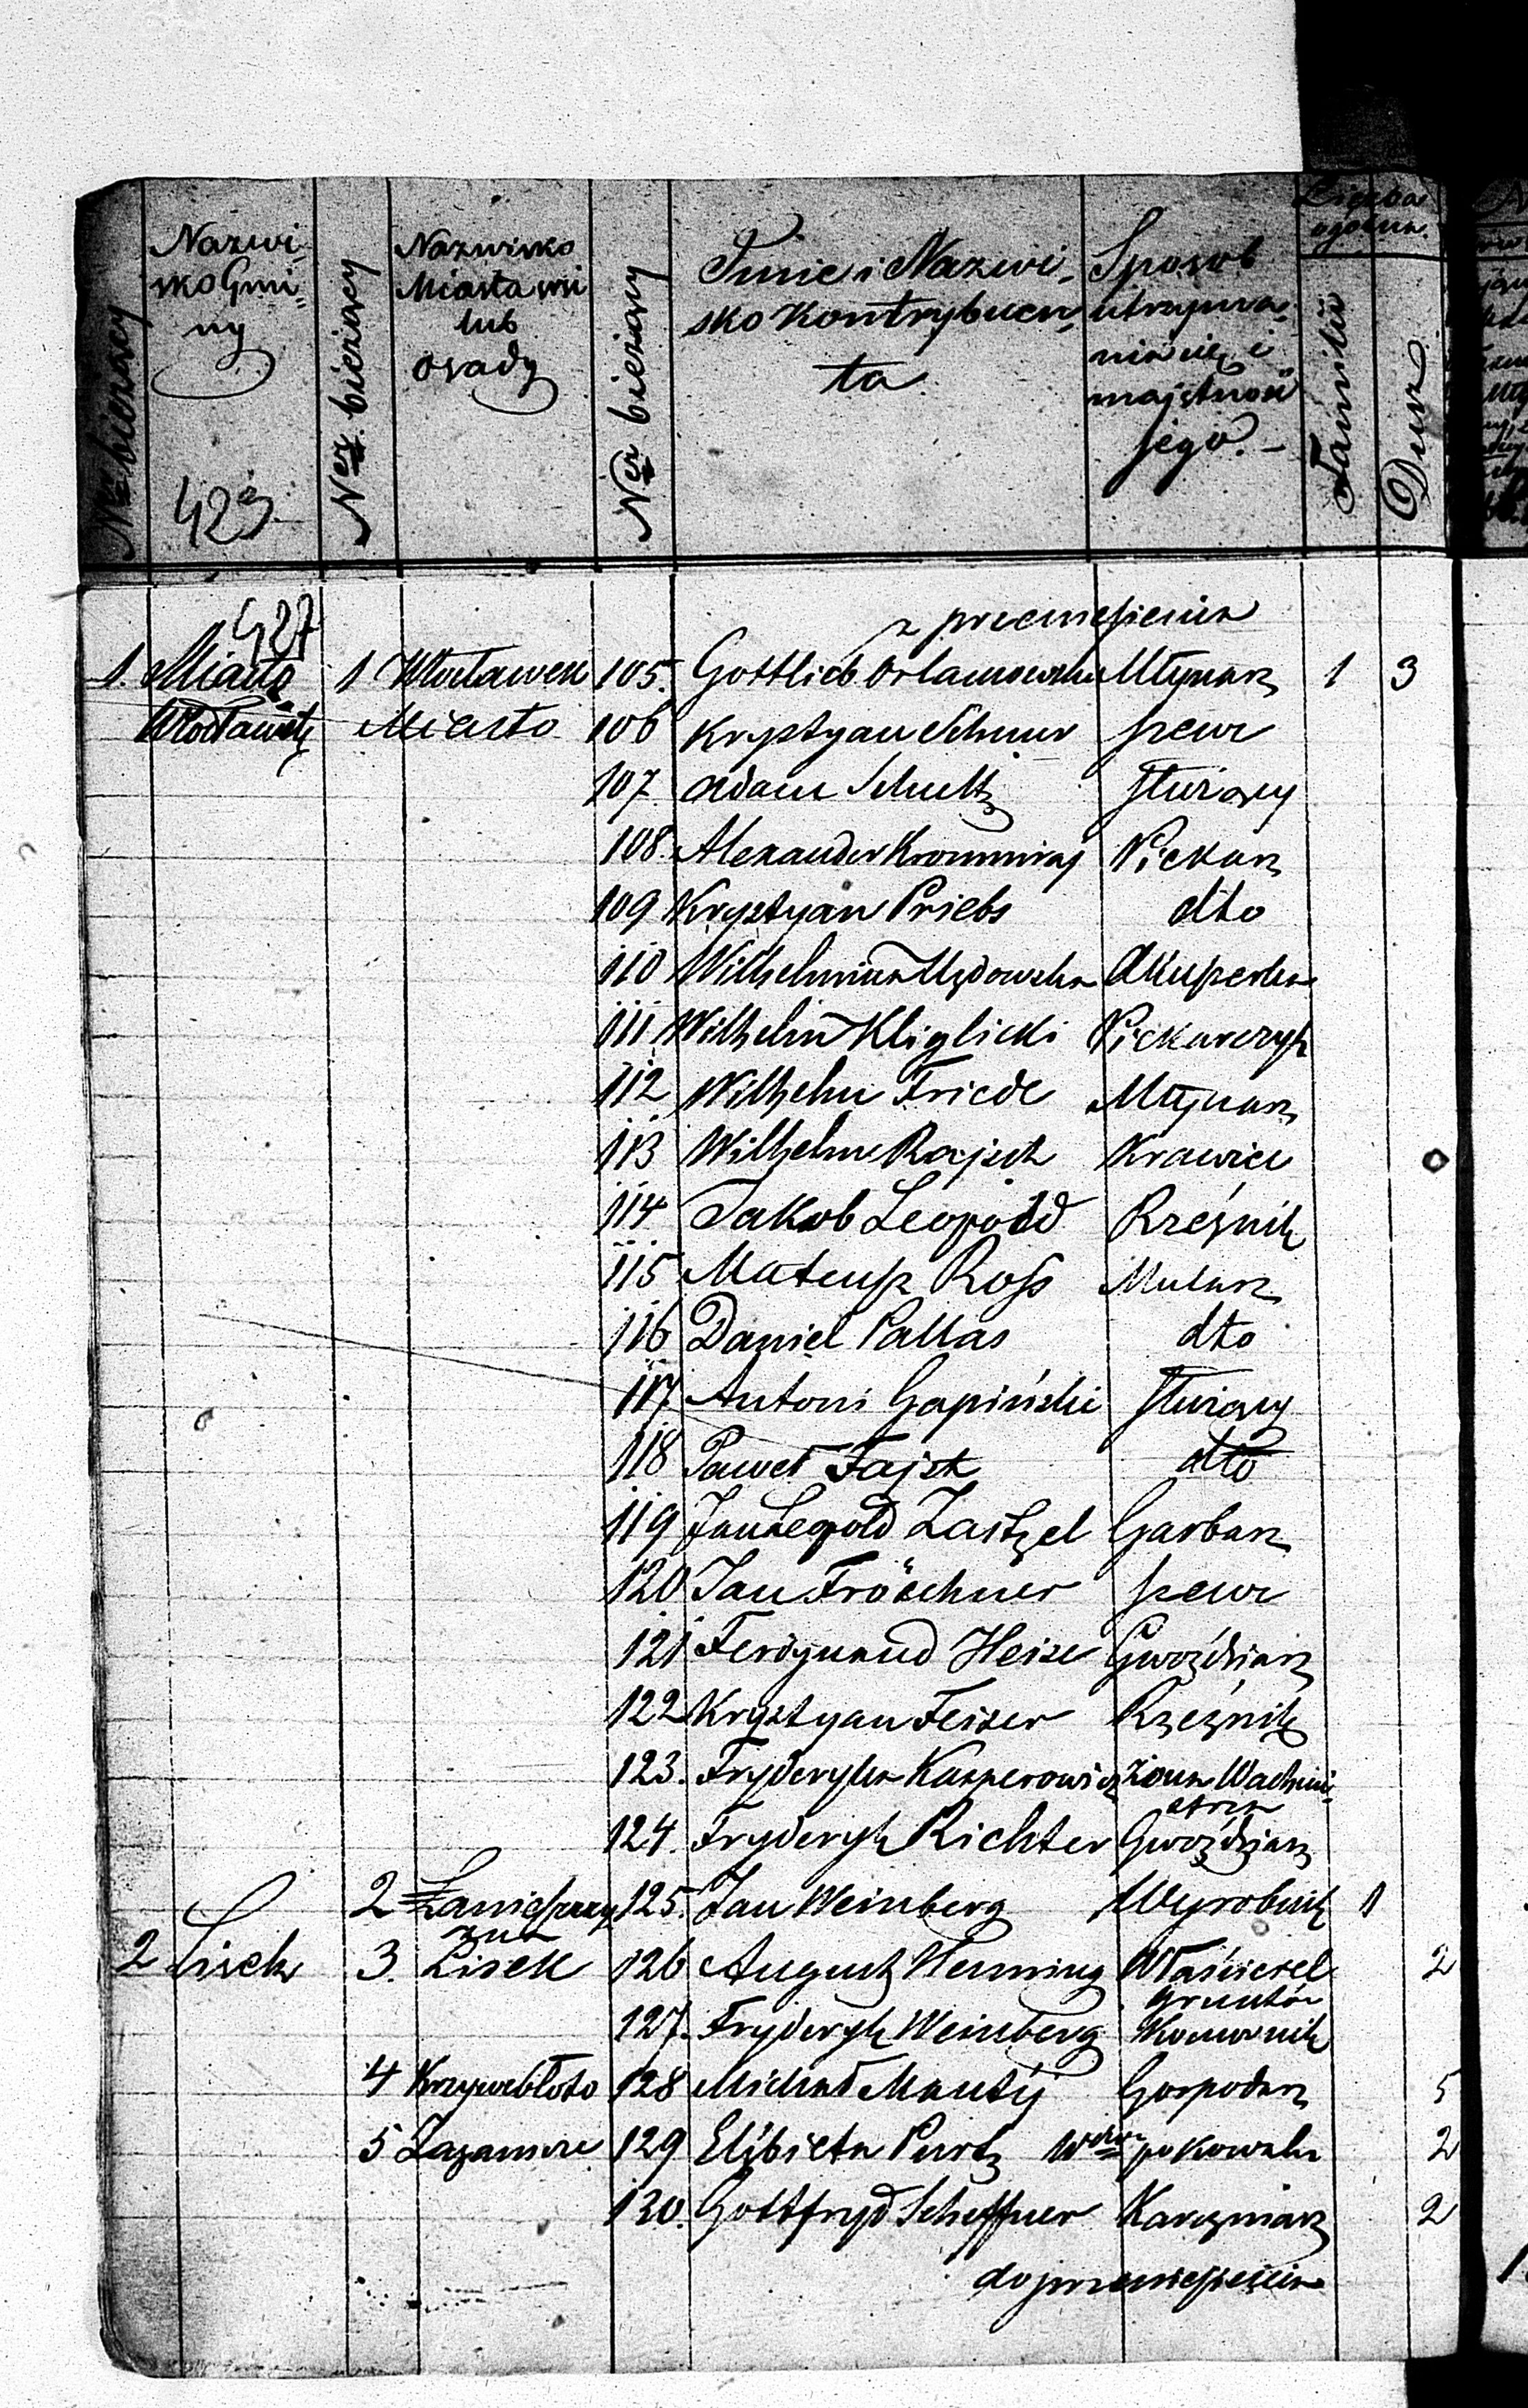 Nro bieżący
Nazwi-
sko Gmi-
ny
423
Ner bieżący
Nazwisko
Miasta wsi
lub
osady
Ner bieżący
Imie i Nazwi-
sko Kontrybuen-
ta
Sposob
utrzymania się i
majętność
jego. -
Liczba
ogólna
Familii
Dusz
427
z przeniesienia
1. Miasto 1 Włocławek 105. Gottlieb Młynarz 1 3
Miasto 106 Krystyan szewc
107. Adam Schultz służący
108. Alexander Piekarz
109 Krystyan Priebs dto
110 Wilhelmina Akuszerka
111 Wilhelm Kliglicki Piekarczyk
112 Wilhelm Friede Młynarz
113 Wilhelm Krawiec
114 Jakob Leopold Rzeźnik
115 Mateusz Ross Mularz
116 Daniel Pallas dto
117. Antoni Gapiński służący
118 Paweł Fajst dto
119 Jan Leopold Garbarz
120 Jan Fröschner szewc
121 Ferdynand Heise Gwoździarz
122 Krystyan Feiser Rzeźnik
123. Fryderyka Kasperowicz żona Wachmi-
strza
124. Fryderyk Richter Gwoździarz
2 125. Jan Weinberg Wyrobnik 1
2 Lisek 3. Lisek 126 August Henning Właściciel 2
gruntów
127. Fryderyk Weinberg Komornik
4 Krzywebłoto 128 Michał Gospodarz 5
5 129 Elżbieta wdowa po Kowalu 2
130. Gottfryd Scheffner Karczmarz 2
do przeniesienia